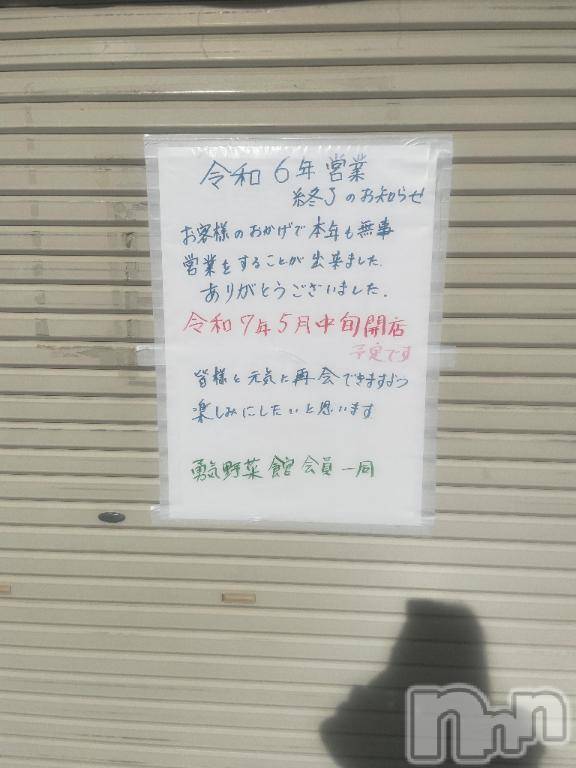 令和6年営業
終了のお知らせ
お客様のおかげで本年も無事
営業をすることが出来ました.
ありがとうございました.
令和7年5月中旬開店
予定です
皆様と元気に再会できますよう
楽しみにしたいと思います
勇気野菜館会員一同
nnn